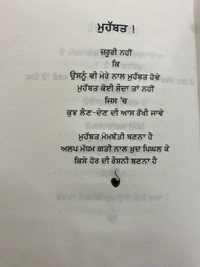 ਮੁਹੱਬਤ !
ਜ਼ਰੂਰੀ ਨਹੀਂ
ਕਿ
ਉਸਨੂੰ ਵੀ ਮੇਰੇ ਨਾਲ ਮੁਹੱਬਤ ਹੋਵੇ
ਮੁਹੱਬਤ ਕੋਈ ਸੌਦਾ ਤਾਂ ਨਹੀਂ
ਜਿਸ 'ਚ
ਕੁਝ ਲੈਣ-ਦੇਣ ਦੀ ਆਸ ਰੱਖੀ ਜਾਵੇ
ਮੁਹੱਬਤ ਮੋਮਬੱਤੀ ਬਣਨਾ ਹੈ
ਅਲਪ ਮੱਧਮ ਗਤੀ ਨਾਲ ਖ਼ੁਦ ਪਿਘਲ ਕੇ
ਕਿਸੇ ਹੋਰ ਦੀ ਰੌਸ਼ਨੀ ਬਣਨਾ ਹੈ